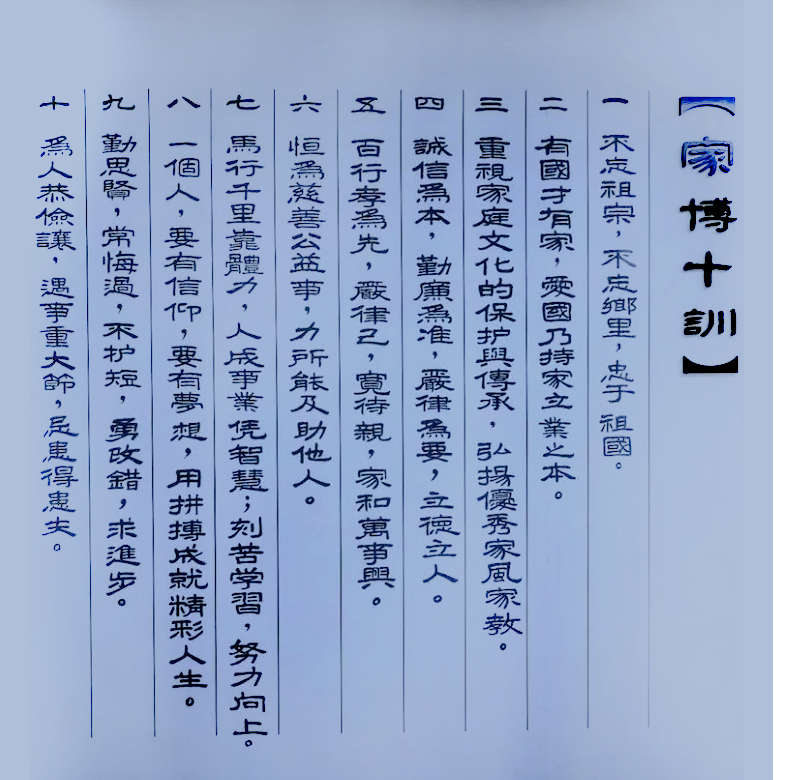 【家博十訓】
一 不忘祖宗，不忘鄉里，忠于祖國。
二 有國才有家，愛國乃持家立業之本。
三 重視家庭文化的保护與傳承，弘揚優秀家風家教。
四 誠信為本，勤廉為准，嚴律為要，立德立人。
五 百行孝為先，嚴律己，寬待親，家和萬事興。
六 恒為慈善公益事，力所能及助他人。
七 馬行千里靠體力，人成事業凭智慧；刻苦学習，努力向上。
八 一個人，要有信仰，要有夢想，用拼搏成就精彩人生。
九 勤思賢，常悔過，不护短，勇改錯，求進步。
十 為人恭儉讓，遇事重大節，忌患得患失。